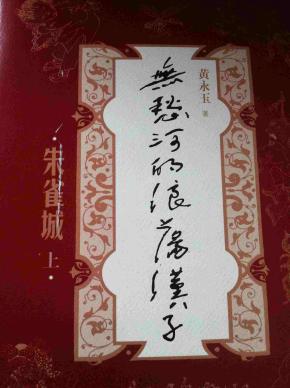 黄永玉 著
無愁河的浪蕩漢子
·朱雀城 上·